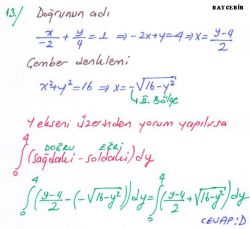 BAYCEBİR
13/ Doğrunun adı
x/-2 + y/4 = 1 ⇒ -2x+y=4 ⇒ x = y-4/2
Çember denklemi
x²+y²=16 ⇒ x=-√16-y²
↳ II. Bölge
y ekseni üzerinden yorum yapılırsa
DOĞRU EĞRİ
∫₀⁴ (sağdaki - soldaki) dy
∫₀⁴ ((y-4/2) - (-√16-y²)) dy = ∫₀⁴ (y-4/2 + √16-y²) dy
CEVAP: D